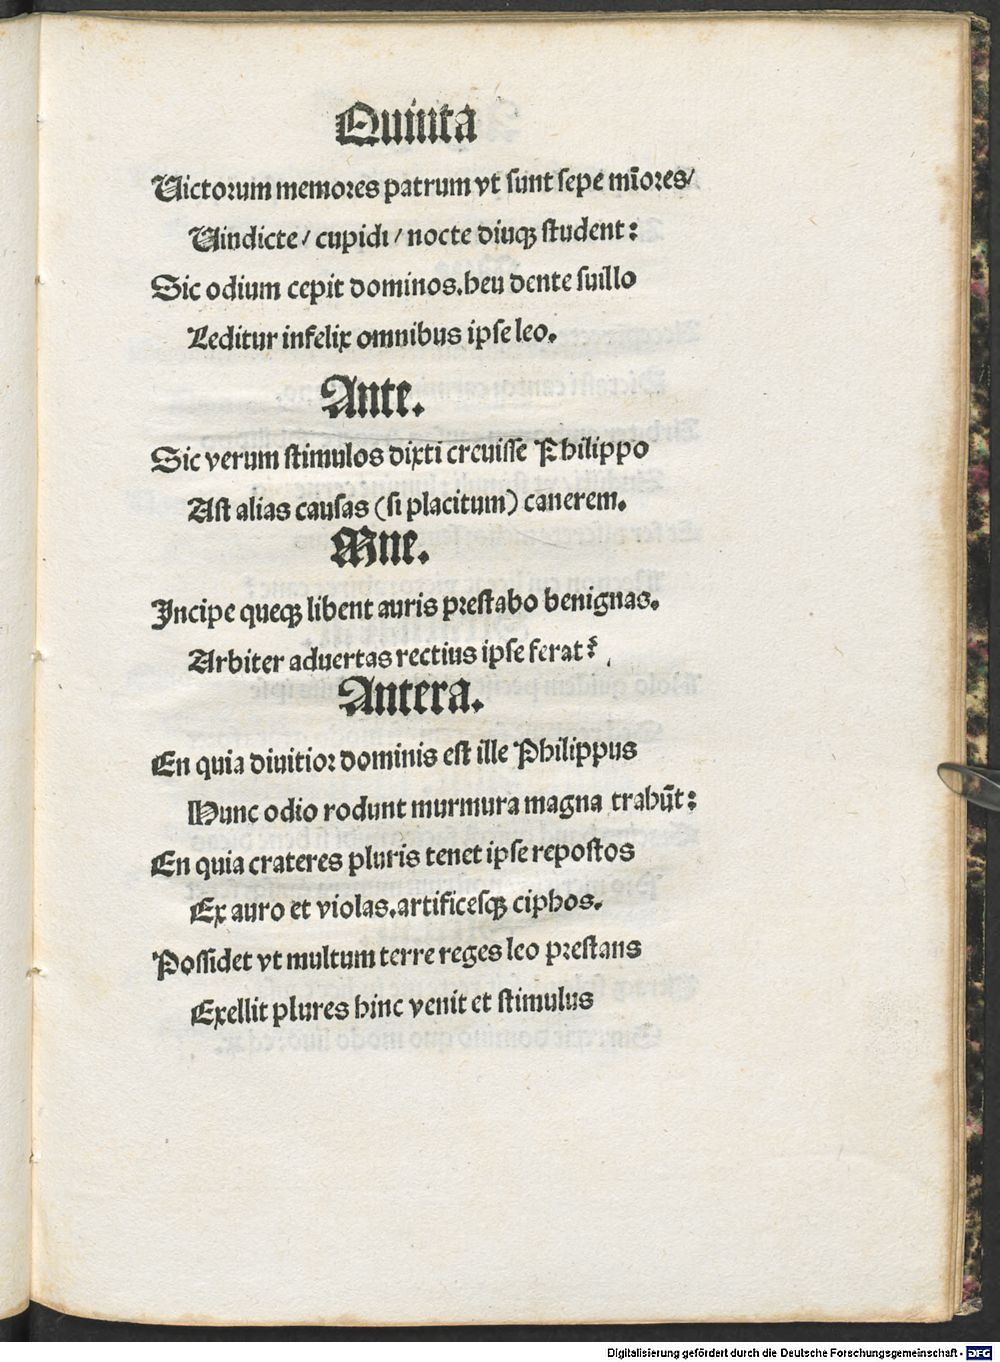 Quinta
Victorum memores patrum vt sunt sepe mīores/
Vindicte / cupidi / nocte diuqꝫ student:
Sic odium cepit dominos. heu dente suillo
Leditur infelix omnibus ipse leo.
Ante.
Sic verum stimulos dixti creuisse Philippo
Ast alias causas (si placitum) canerem.
Mne.
Incipe queqꝫ libent auris prestabo benignas.
Arbiter aduertas rectius ipse ferat?
Antera.
En quia diuitior dominis est ille Philippus
Hunc odio rodunt murmura magna trahūt:
En quia crateres pluris tenet ipse repostos
Ex auro et violas. artificesqꝫ ciphos.
Possidet vt multum terre reges leo prestans
Exellit plures hinc venit et stimulus
Digitalisierung gefördert durch die Deutsche Forschungsgemeinschaft - DFG